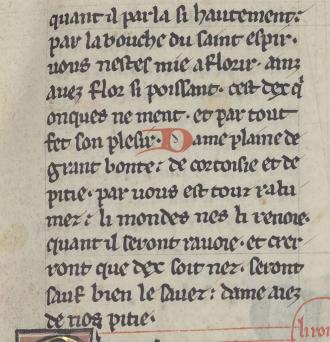 quant il parla si hautement:
par la bouche du saint espir·
uous nestes mie a florir· ainz
auez flor si poissant· cest dex qi
onques ne ment· et par tout
fet son plesir· Dame plaine de
grant bonte: de cortoisie et de
pitie· par uous est touz ralu
mez: li mondes nes li renoie·
quant il seront rauoie· et crer
ront que dex soit nez· seront
sauf bien le sauez: dame aiez
de nos pitie·